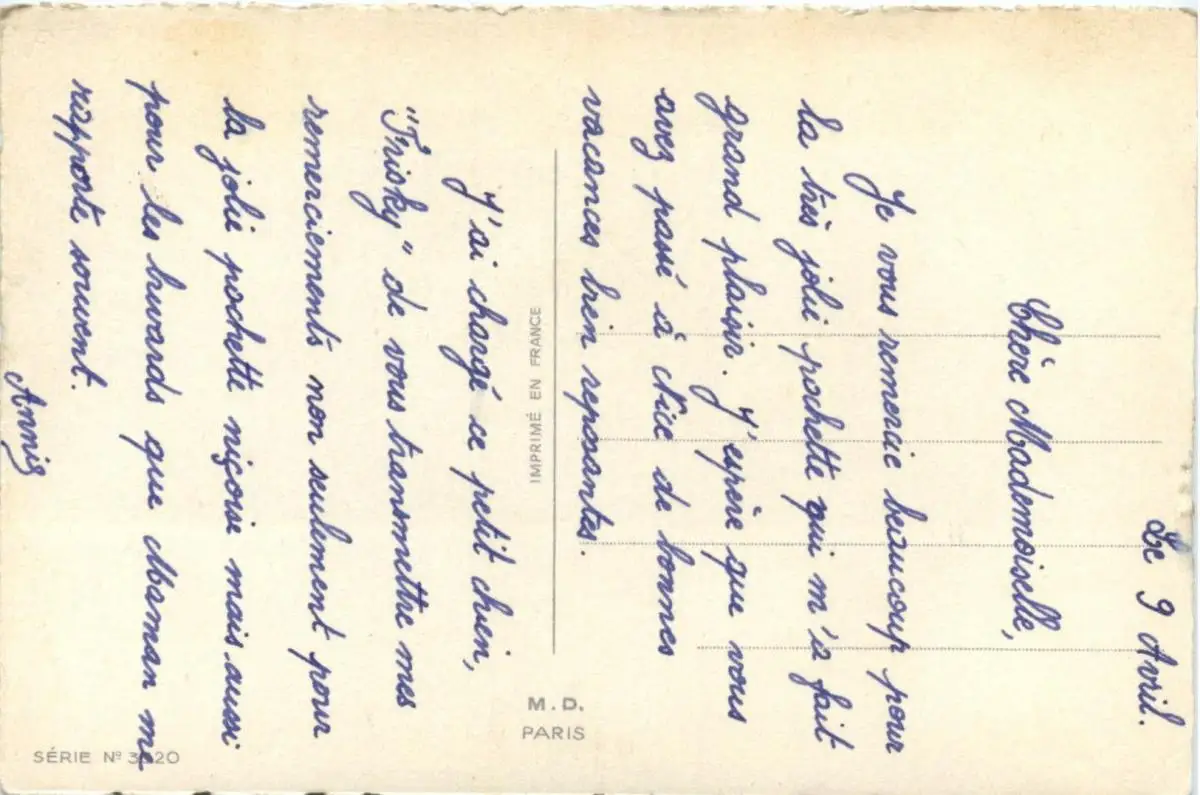 Le 9 Avril.
Chère Mademoiselle,
Je vous remercie beaucoup pour
la très jolie pochette qui m'a fait
grand plaisir. J'espère que vous
avez passé à Nice de bonnes
vacances bien reposantes.
J'ai chargé ce petit chien,
"Frisky" de vous transmettre mes
remerciements non seulement pour
la jolie pochette niçoise mais aussi
pour les buvards que Maman me
rapporte souvent.
Annie
IMPRIMÉ EN FRANCE
M. D.
PARIS
SÉRIE Nº